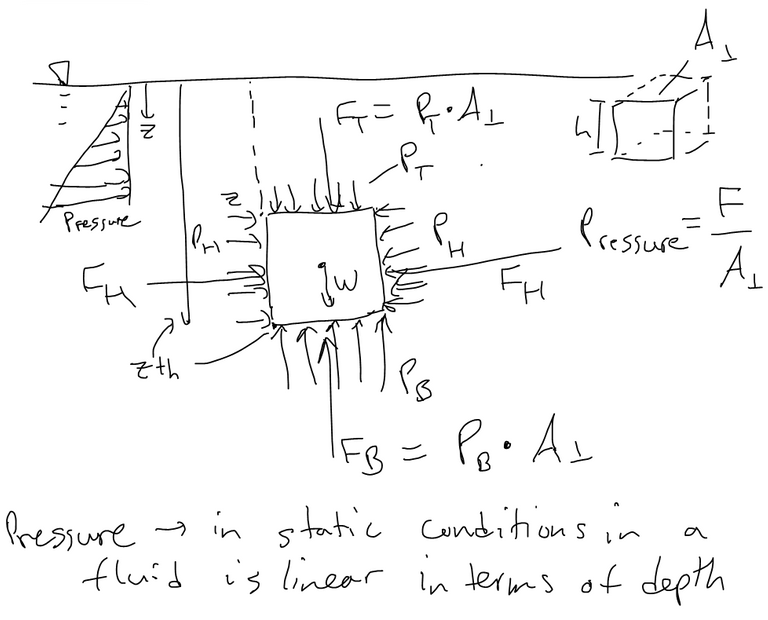 A⊥
z
F_T = P_T · A⊥
h
P_T
Pressure
z
P_H
P_H
Pressure = F / A⊥
F_H
W
F_H
z+h
P_B
F_B = P_B · A⊥
Pressure → in static conditions in a
fluid is linear in terms of depth